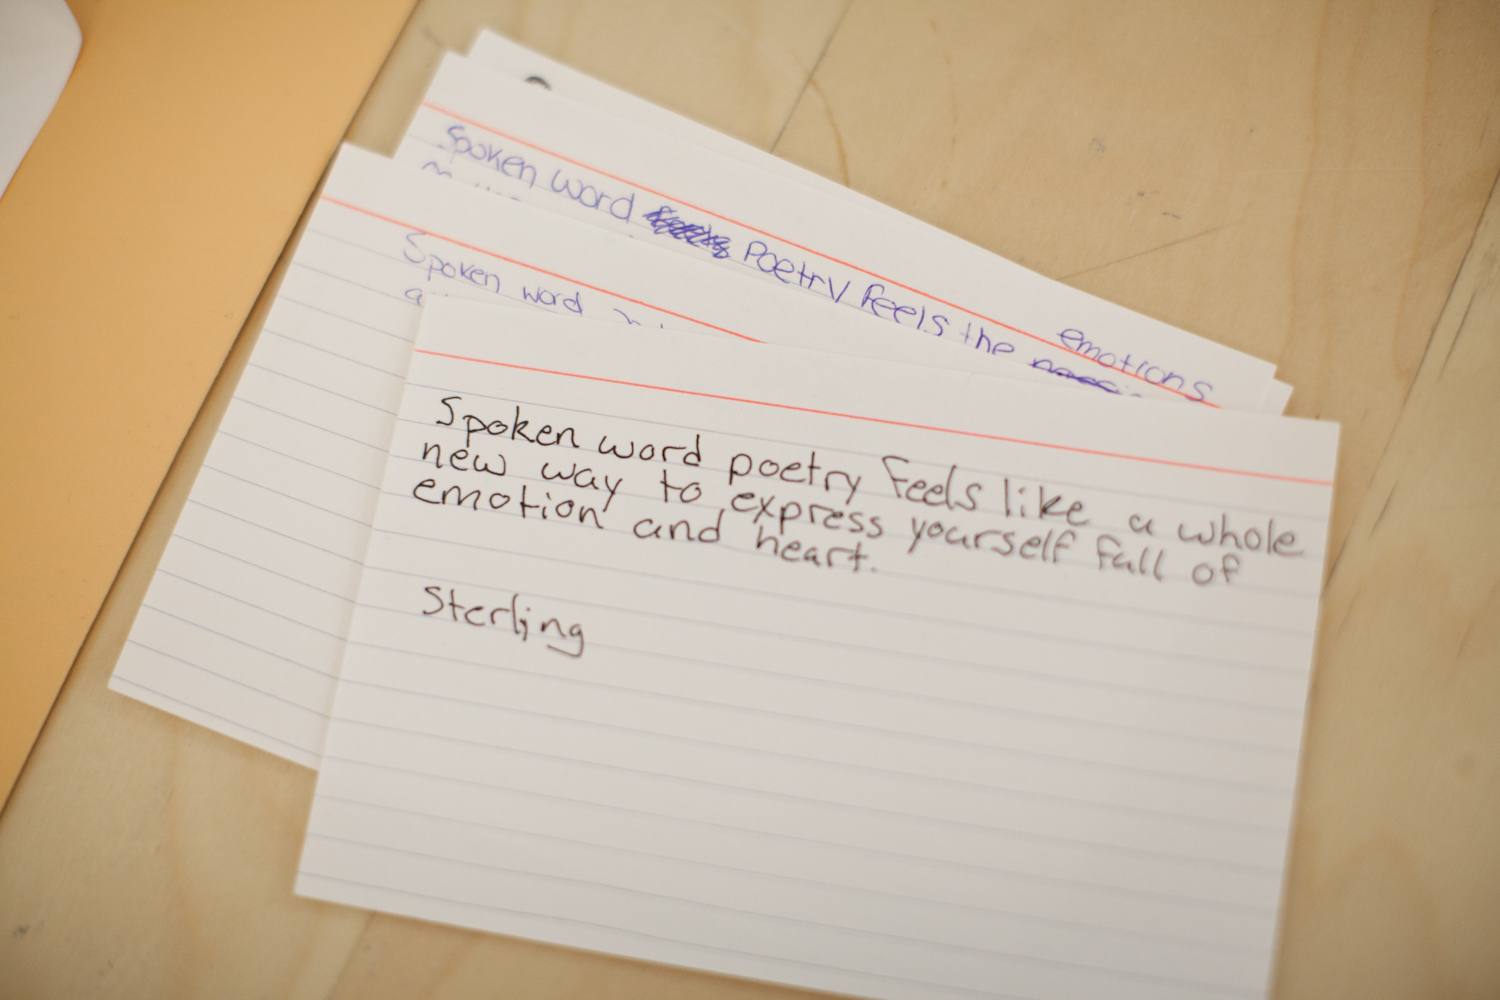 Spoken word Poetry feels the
emotions
Spoken word
Spoken word poetry feels like a whole
new way to express yourself full of
emotion and heart.
Sterling